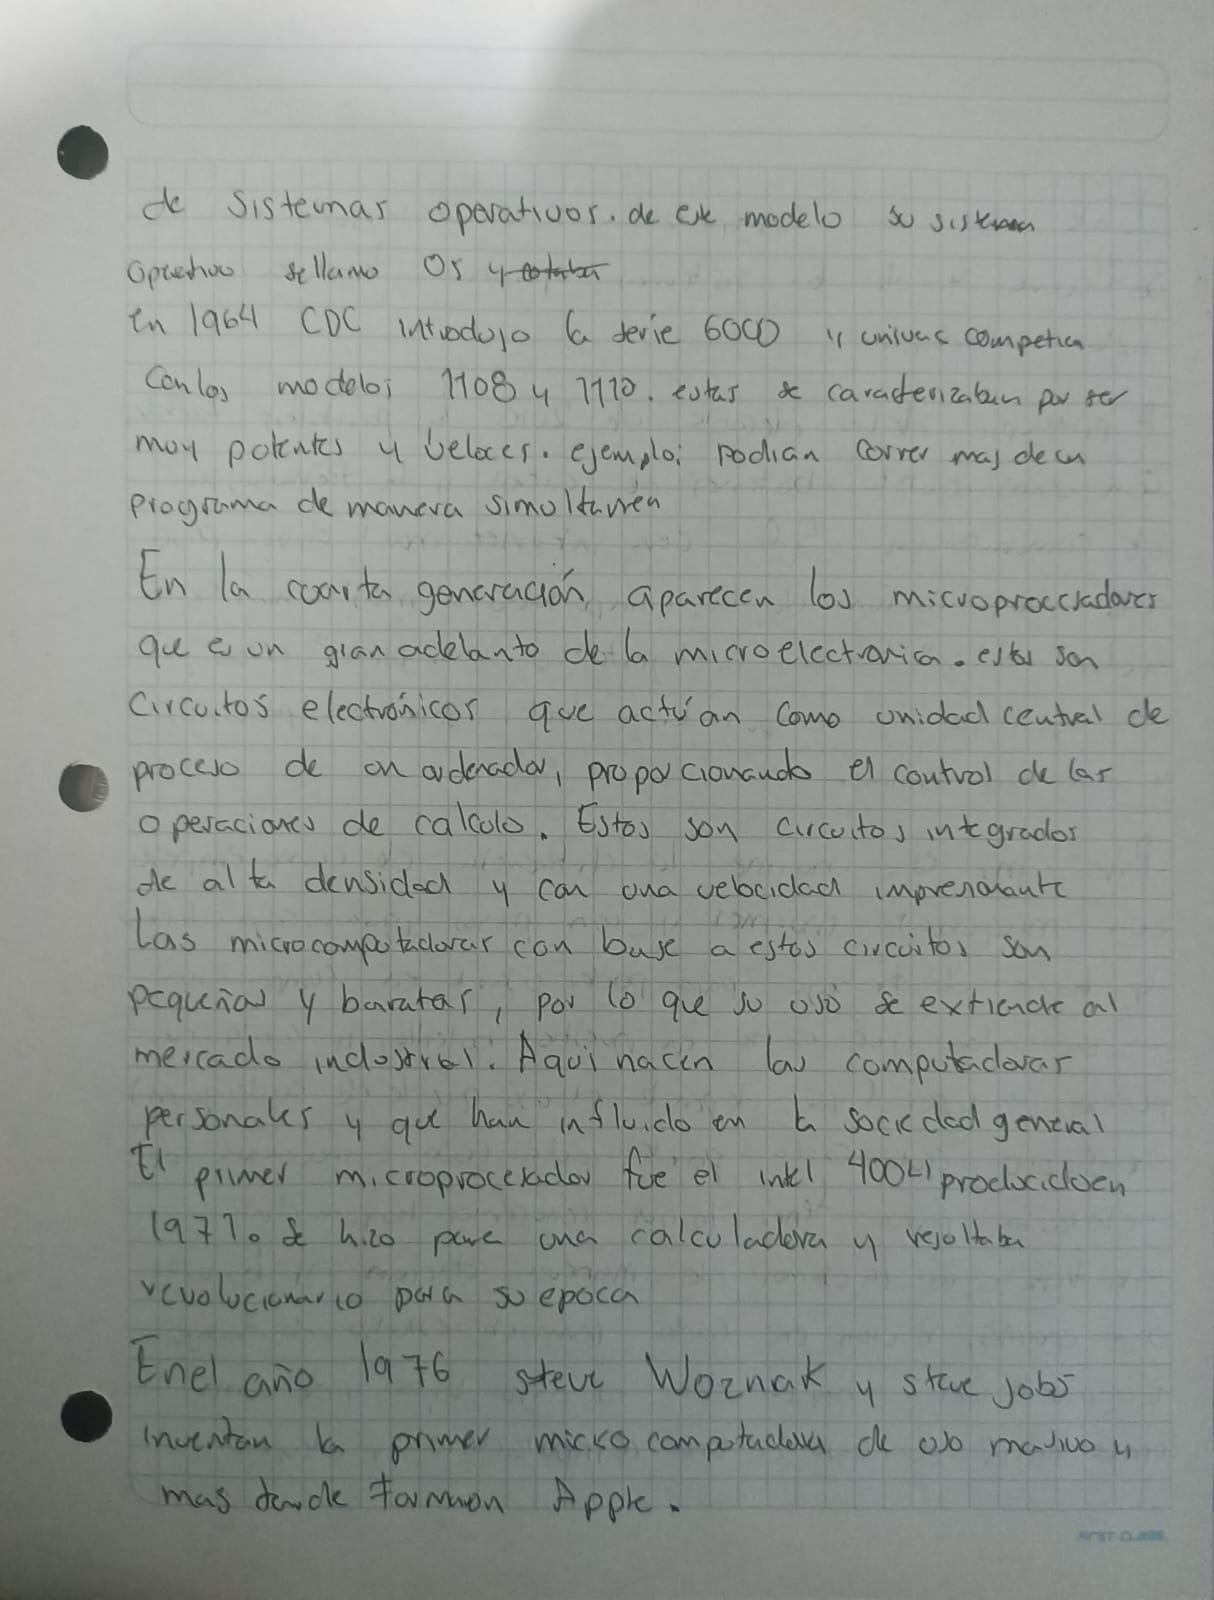 de sistemas operativos. de este modelo su sistema
operativo se llamo OS y
En 1964 CDC introdujo la serie 6000 y univac competia
Con los modelos 1108 y 1110. estas se caracterizaban por ser
muy potentes y veloces. ejemplo: podian correr mas de un
programa de manera simultanea
En la cuarta generación, aparecen los microprocesadores
que es un gran adelanto de la microelectronica. estos son
Circuitos electrónicos que actúan como unidad central de
proceso de un ordenador, proporcionando el control de las
operaciones de calculo. Estos son circuitos integrados
de alta densidad y con una velocidad impresionante
Las microcomputadoras con base a estos circuitos son
pequeñas y baratas, por lo que su uso se extiende al
mercado industrial. Aquí nacen las computadoras
personales y que han influido en la sociedad general
El primer microprocesador fue el intel 4004 producido en
1971. Se hizo para una calculadora y resultaba
revolucionario para su epoca
En el año 1976 steve Woznak y steve jobs
inventan la primer micro computadora de uso masivo y
mas tarde forman Apple.
FIRST CLASS